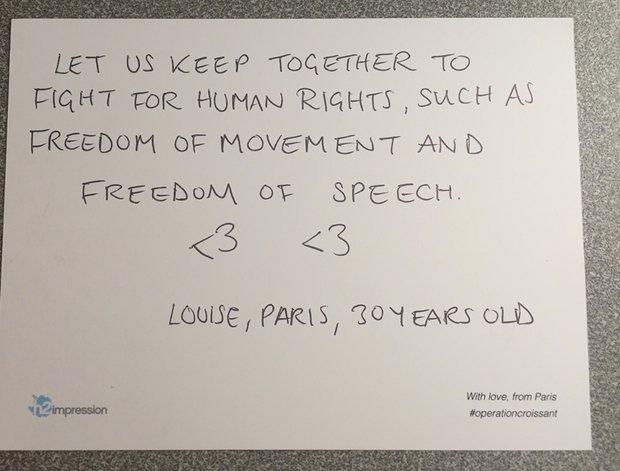 LET US KEEP TOGETHER TO
FIGHT FOR HUMAN RIGHTS, SUCH AS
FREEDOM OF MOVEMENT AND
FREEDOM OF SPEECH.
<3 <3
LOUISE, PARIS, 30 YEARS OLD
With love, from Paris
n2impression
#operationcroissant